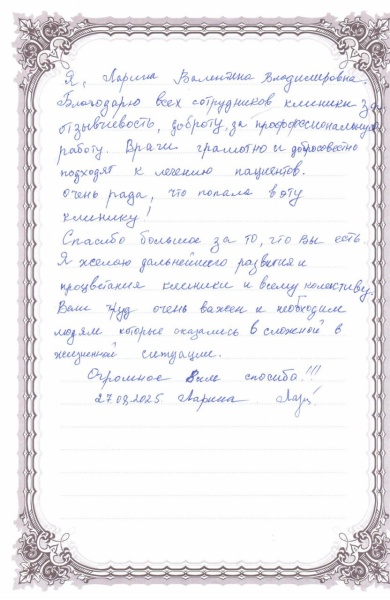 Я, Ларина Валентина Владимировна.
Благодарю всех сотрудников клиники за
отзывчивость, доброту, за профессиональную
работу. Врачи грамотно и добросовестно
подходят к лечению пациентов.
очень рада, что попала в эту
клинику!
Спасибо большое за то, что Вы есть.
Я желаю дальнейшего развития и
процветания клиники и всему колективу.
Ваш труд очень важен и необходим
людям которые оказались в сложной в
жизненной ситуации.
Огромное Вам спосибо!!!
27.08.2025 Ларина